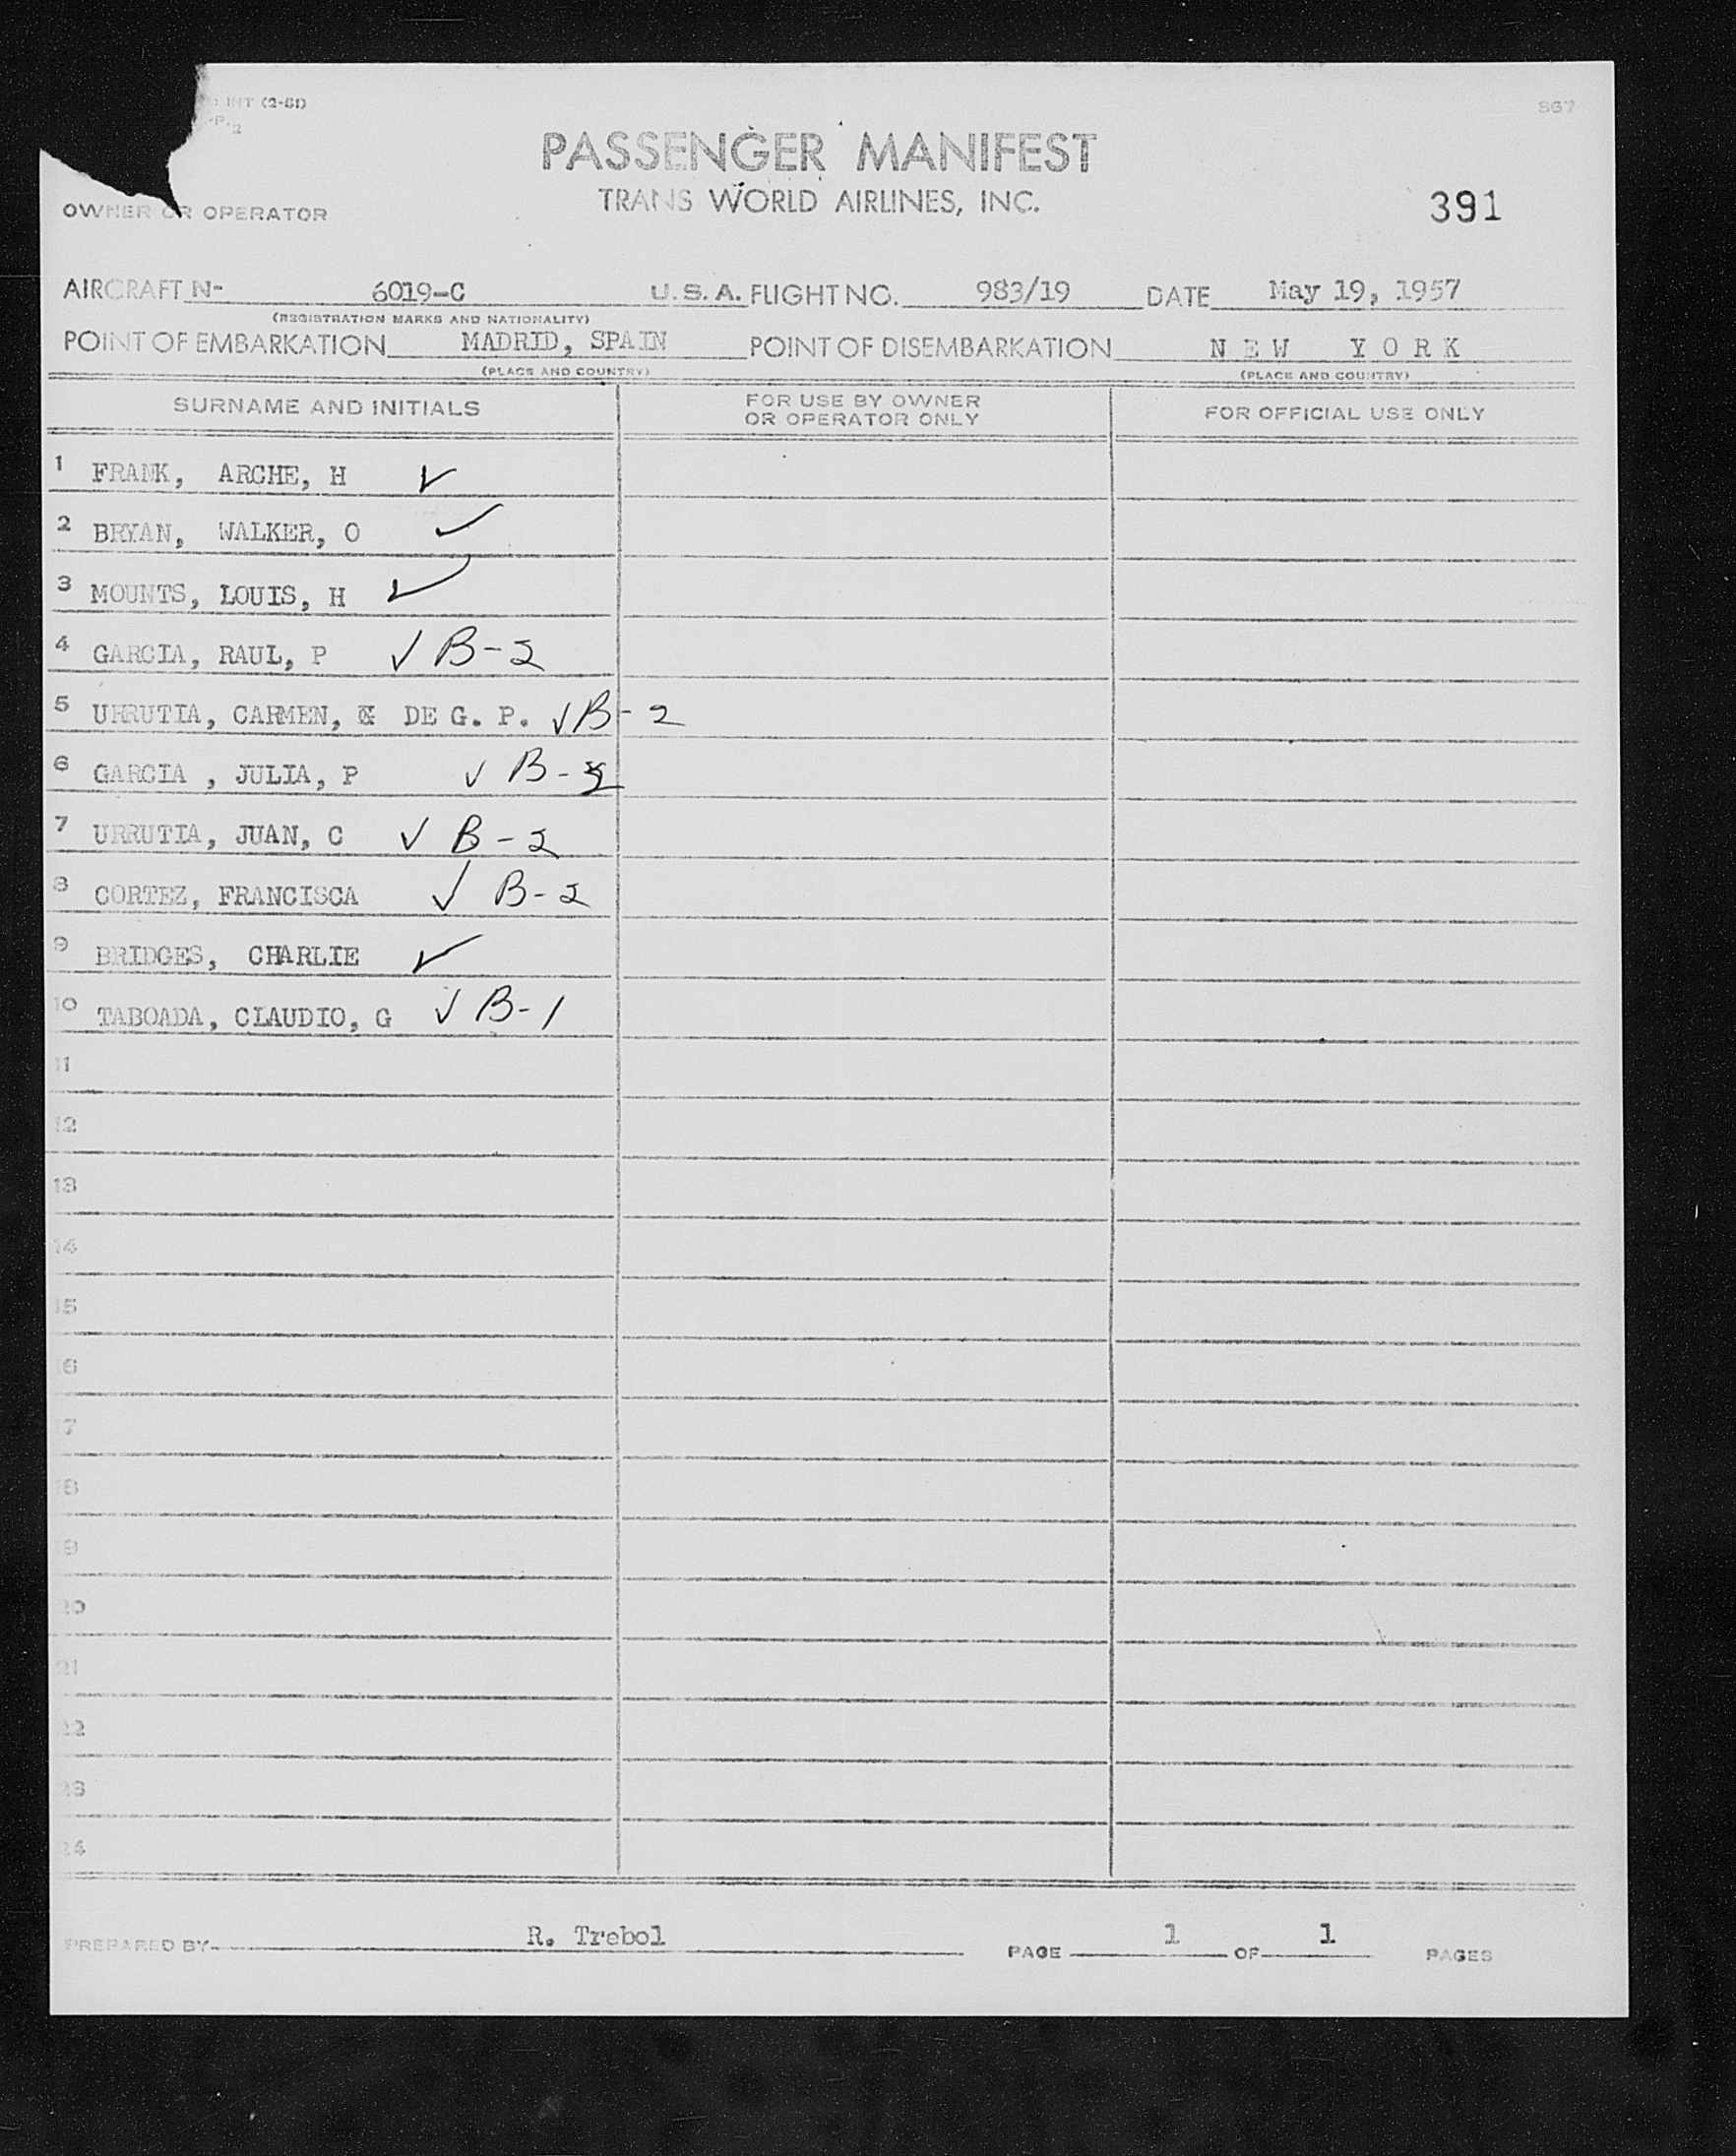 INT (2-61)
-P-2
867
PASSENGER MANIFEST
TRANS WORLD AIRLINES, INC.
391
OWNER OR OPERATOR
AIRCRAFT N- 6019-C U.S.A. FLIGHT NO. 983/19 DATE May 19, 1957
(REGISTRATION MARKS AND NATIONALITY)
POINT OF EMBARKATION MADRID, SPAIN POINT OF DISEMBARKATION NEW YORK
(PLACE AND COUNTRY) (PLACE AND COUNTRY)
SURNAME AND INITIALS FOR USE BY OWNER OR OPERATOR ONLY FOR OFFICIAL USE ONLY
1 FRANK, ARCHE, H ✓
2 BRYAN, WALKER, O ✓
3 MOUNTS, LOUIS, H ✓
4 GARCIA, RAUL, P ✓ B-2
5 URRUTIA, CARMEN, DE G. P. ✓ B-2
6 GARCIA , JULIA, P ✓ B-2
7 URRUTIA, JUAN, C ✓ B-2
8 CORTEZ, FRANCISCA ✓ B-2
9 BRIDGES, CHARLIE ✓
10 TABOADA, CLAUDIO, G ✓ B-1
11
12
13
14
15
16
17
18
19
20
21
22
23
24
PREPARED BY R. Trebol PAGE 1 OF 1 PAGES